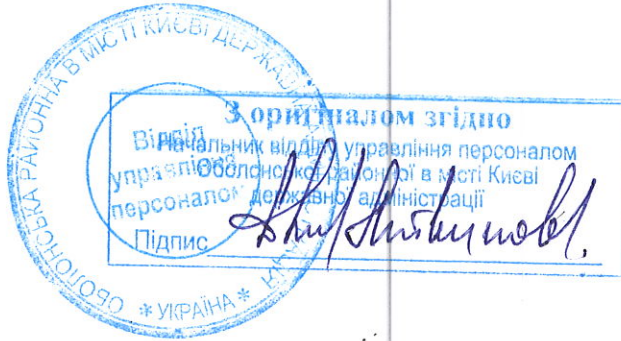 ОБОЛОНСЬКА РАЙОННА В МІСТІ КИЄВІ ДЕРЖАВНА
* УКРАЇНА *
Відділ
управління
персоналом
З оригіналом згідно
Начальник відділу управління персоналом
Оболонської районної в місті Києві
державної адміністрації
Підпис